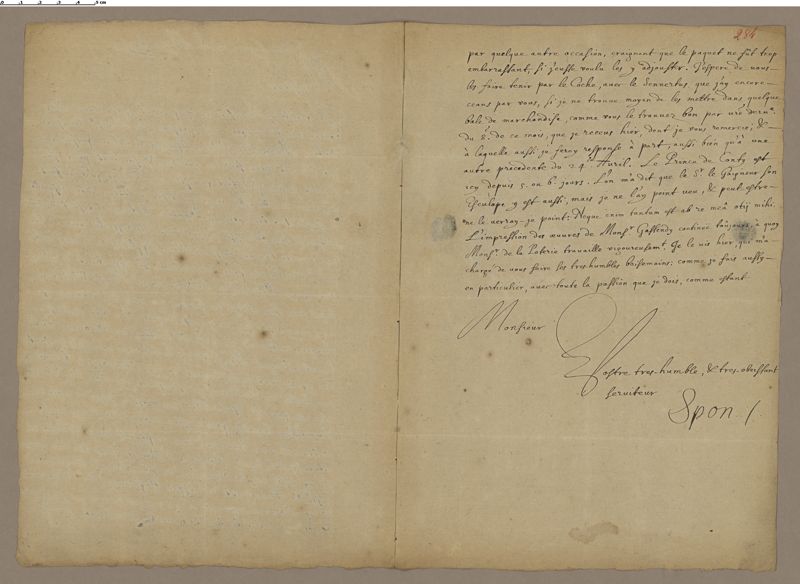 284
par quelque autre occasion, craignant que le paquet ne fût trop
embarrassant, si j'eusse voulu les y adjouster. J'espere de vous
les faire tenir par le Coche, avec le Sennertus que j'ay encore
ceans par vous, si je ne trouve moyen de les mettre dans quelque
bale de marchandise, comme vous le trouvez bon par
du 8e. de ce mois, que je receus hier, dont je vous remercie; &
à laquelle aussi je feray response à part, aussi bien qu'à une
autre precedente du 24e Avril. Le Prince de Conty est
icy depuis 5. ou 6. jours. L'on m'a dit que le Sr. le Gaigneur son
Esculape y est aussi, mais je ne l'ay point veu, & peut estre
ne le verray-je point: Neque enim tantum est ab re meâ otij mihi.
L'impression des œuvres de Monsr. Gassendy continue tousjours, à quoy
Monsr. de la Poterie travaille vigoureusemt. Je le vis hier, qui m'a
chargé de vous faire ses tres humbles baisemains: comme je fais aussy
en particulier, avec toute la passion que je dois, comme estant
Monsieur
Vostre tres-humble, & tres-obeissant
serviteur
Spon